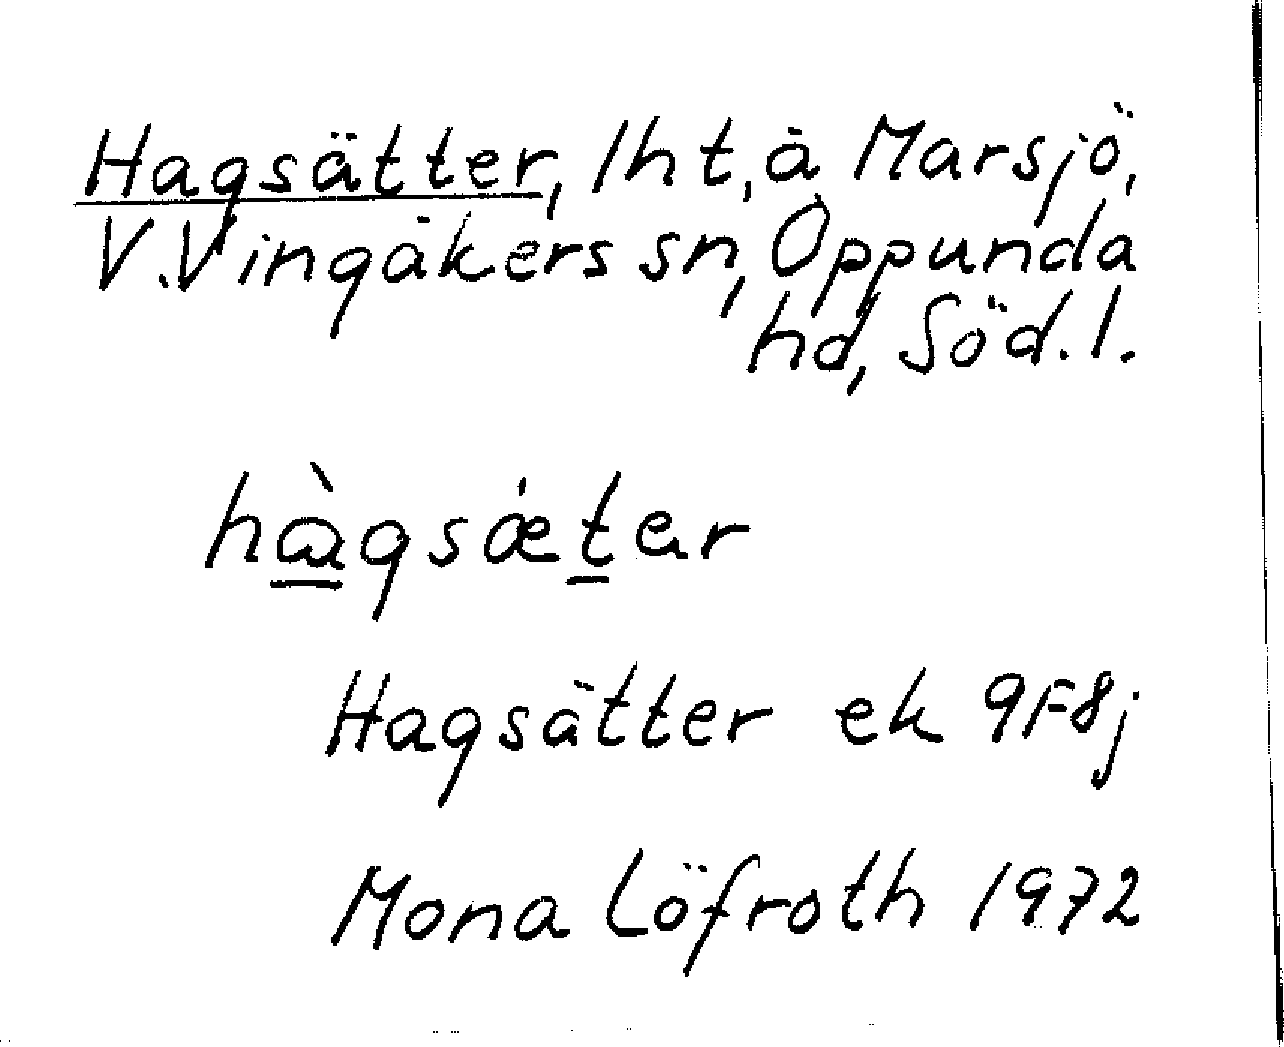 Hagsätter, lht, å Marsjö,
V. Vingåkers sn, Oppunda
hd, Söd. l.
hàgsætar
Hagsätter ek 9F8j
Mona Löfroth 1972